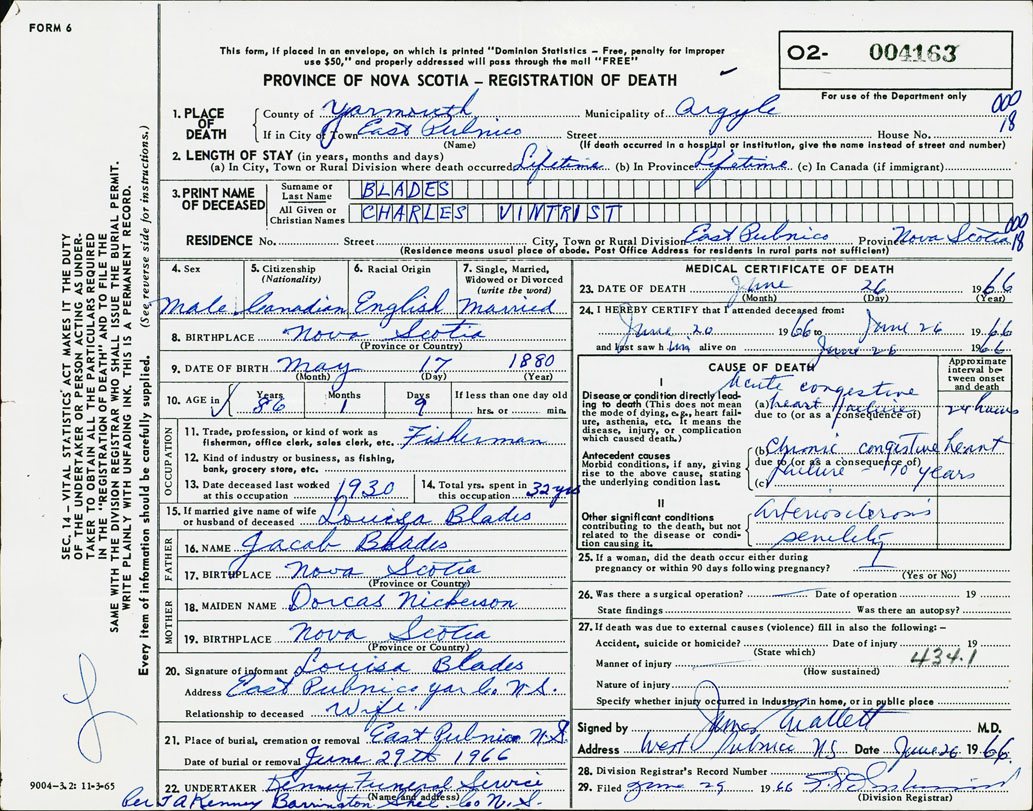 FORM 6
This form, if placed in an envelope, on which is printed "Dominion Statistics – Free, penalty for improper
use $50," and properly addressed will pass through the mail "FREE"
PROVINCE OF NOVA SCOTIA – REGISTRATION OF DEATH
O2- 004163
For use of the Department only
000
18
1. PLACE OF DEATH County of Yarmouth Municipality of Argyle
If in City of Town East Pubnico Street House No.
(Name) (If death occurred in a hospital or institution, give the name instead of street and number)
2. LENGTH OF STAY (in years, months and days)
(a) In City, Town or Rural Division where death occurred Lifetime (b) In Province Lifetime (c) In Canada (if immigrant)
3. PRINT NAME OF DECEASED Surname or Last Name BLADES
All Given or Christian Names CHARLES VINTRIST
000
18
RESIDENCE No. Street City, Town or Rural Division East Pubnico Province Nova Scotia
(Residence means usual place of abode. Post Office Address for residents in rural parts not sufficient)
4. Sex 5. Citizenship (Nationality) 6. Racial Origin 7. Single, Married, Widowed or Divorced (write the word)
Male Canadian English Married
8. BIRTHPLACE Nova Scotia
(Province or Country)
9. DATE OF BIRTH May 17 1880
(Month) (Day) (Year)
10. AGE in Years Months Days If less than one day old
86 1 9 hrs. or min.
OCCUPATION
11. Trade, profession, or kind of work as
fisherman, office clerk, sales clerk, etc. Fisherman
12. Kind of industry or business, as fishing,
bank, grocery store, etc.
13. Date deceased last worked at this occupation 1930 14. Total yrs. spent in this occupation 32 yrs
15. If married give name of wife
or husband of deceased Louisa Blades
FATHER
16. NAME Jacob Blades
17. BIRTHPLACE Nova Scotia
(Province or Country)
MOTHER
18. MAIDEN NAME Dorcas Nickerson
19. BIRTHPLACE Nova Scotia
(Province or Country)
20. Signature of informant Louisa Blades
Address East Pubnico Yar Co N.S.
Relationship to deceased Wife.
21. Place of burial, cremation or removal East Pubnico N.S.
Date of burial or removal June 29th 1966
22. UNDERTAKER Kenney Funeral Service
(Name and address)
Per J A Kenney Barrington Shel. Co N.S.
MEDICAL CERTIFICATE OF DEATH
23. DATE OF DEATH June 26 1966
(Month) (Day) (Year)
24. I HEREBY CERTIFY that I attended deceased from:
June 20 1966 to June 26 1966
and last saw him alive on June 26 1966
CAUSE OF DEATH
Approximate interval between onset and death
I
Disease or condition directly leading to death (This does not mean the mode of dying, e.g., heart failure, asthenia, etc. It means the disease, injury, or complication which caused death.)
Acute congestive
(a) heart failure 24 hours
due to (or as a consequence of)
Antecedent causes
Morbid conditions, if any, giving rise to the above cause, stating the underlying condition last.
(b) Chronic congestive heart
due to (or as a consequence of)
(c) failure - 10 years
II
Other significant conditions
contributing to the death, but not related to the disease or condition causing it.
Arteriosclerosis
senility
25. If a woman, did the death occur either during
pregnancy or within 90 days following pregnancy?
(Yes or No)
26. Was there a surgical operation? Date of operation 19
State findings Was there an autopsy?
27. If death was due to external causes (violence) fill in also the following: –
Accident, suicide or homicide? Date of injury 19
(State which) 434.1
Manner of injury
(How sustained)
Nature of injury
Specify whether injury occurred in industry, in home, or in public place
Signed by M.D.
Address West Pubnico NS Date June 26 1966.
28. Division Registrar's Record Number
29. Filed June 29 1966
(Division Registrar)
SEC. 14 – VITAL STATISTICS ACT MAKES IT THE DUTY
OF THE UNDERTAKER OR PERSON ACTING AS UNDER-
TAKER TO OBTAIN ALL THE PARTICULARS REQUIRED
IN THE "REGISTRATION OF DEATH" AND TO FILE THE
SAME WITH THE DIVISION REGISTRAR WHO SHALL ISSUE THE BURIAL PERMIT.
WRITE PLAINLY WITH UNFADING INK. THIS IS A PERMANENT RECORD.
Every item of information should be carefully supplied. (See reverse side for instructions.)
9004–3.2: 11-3-65